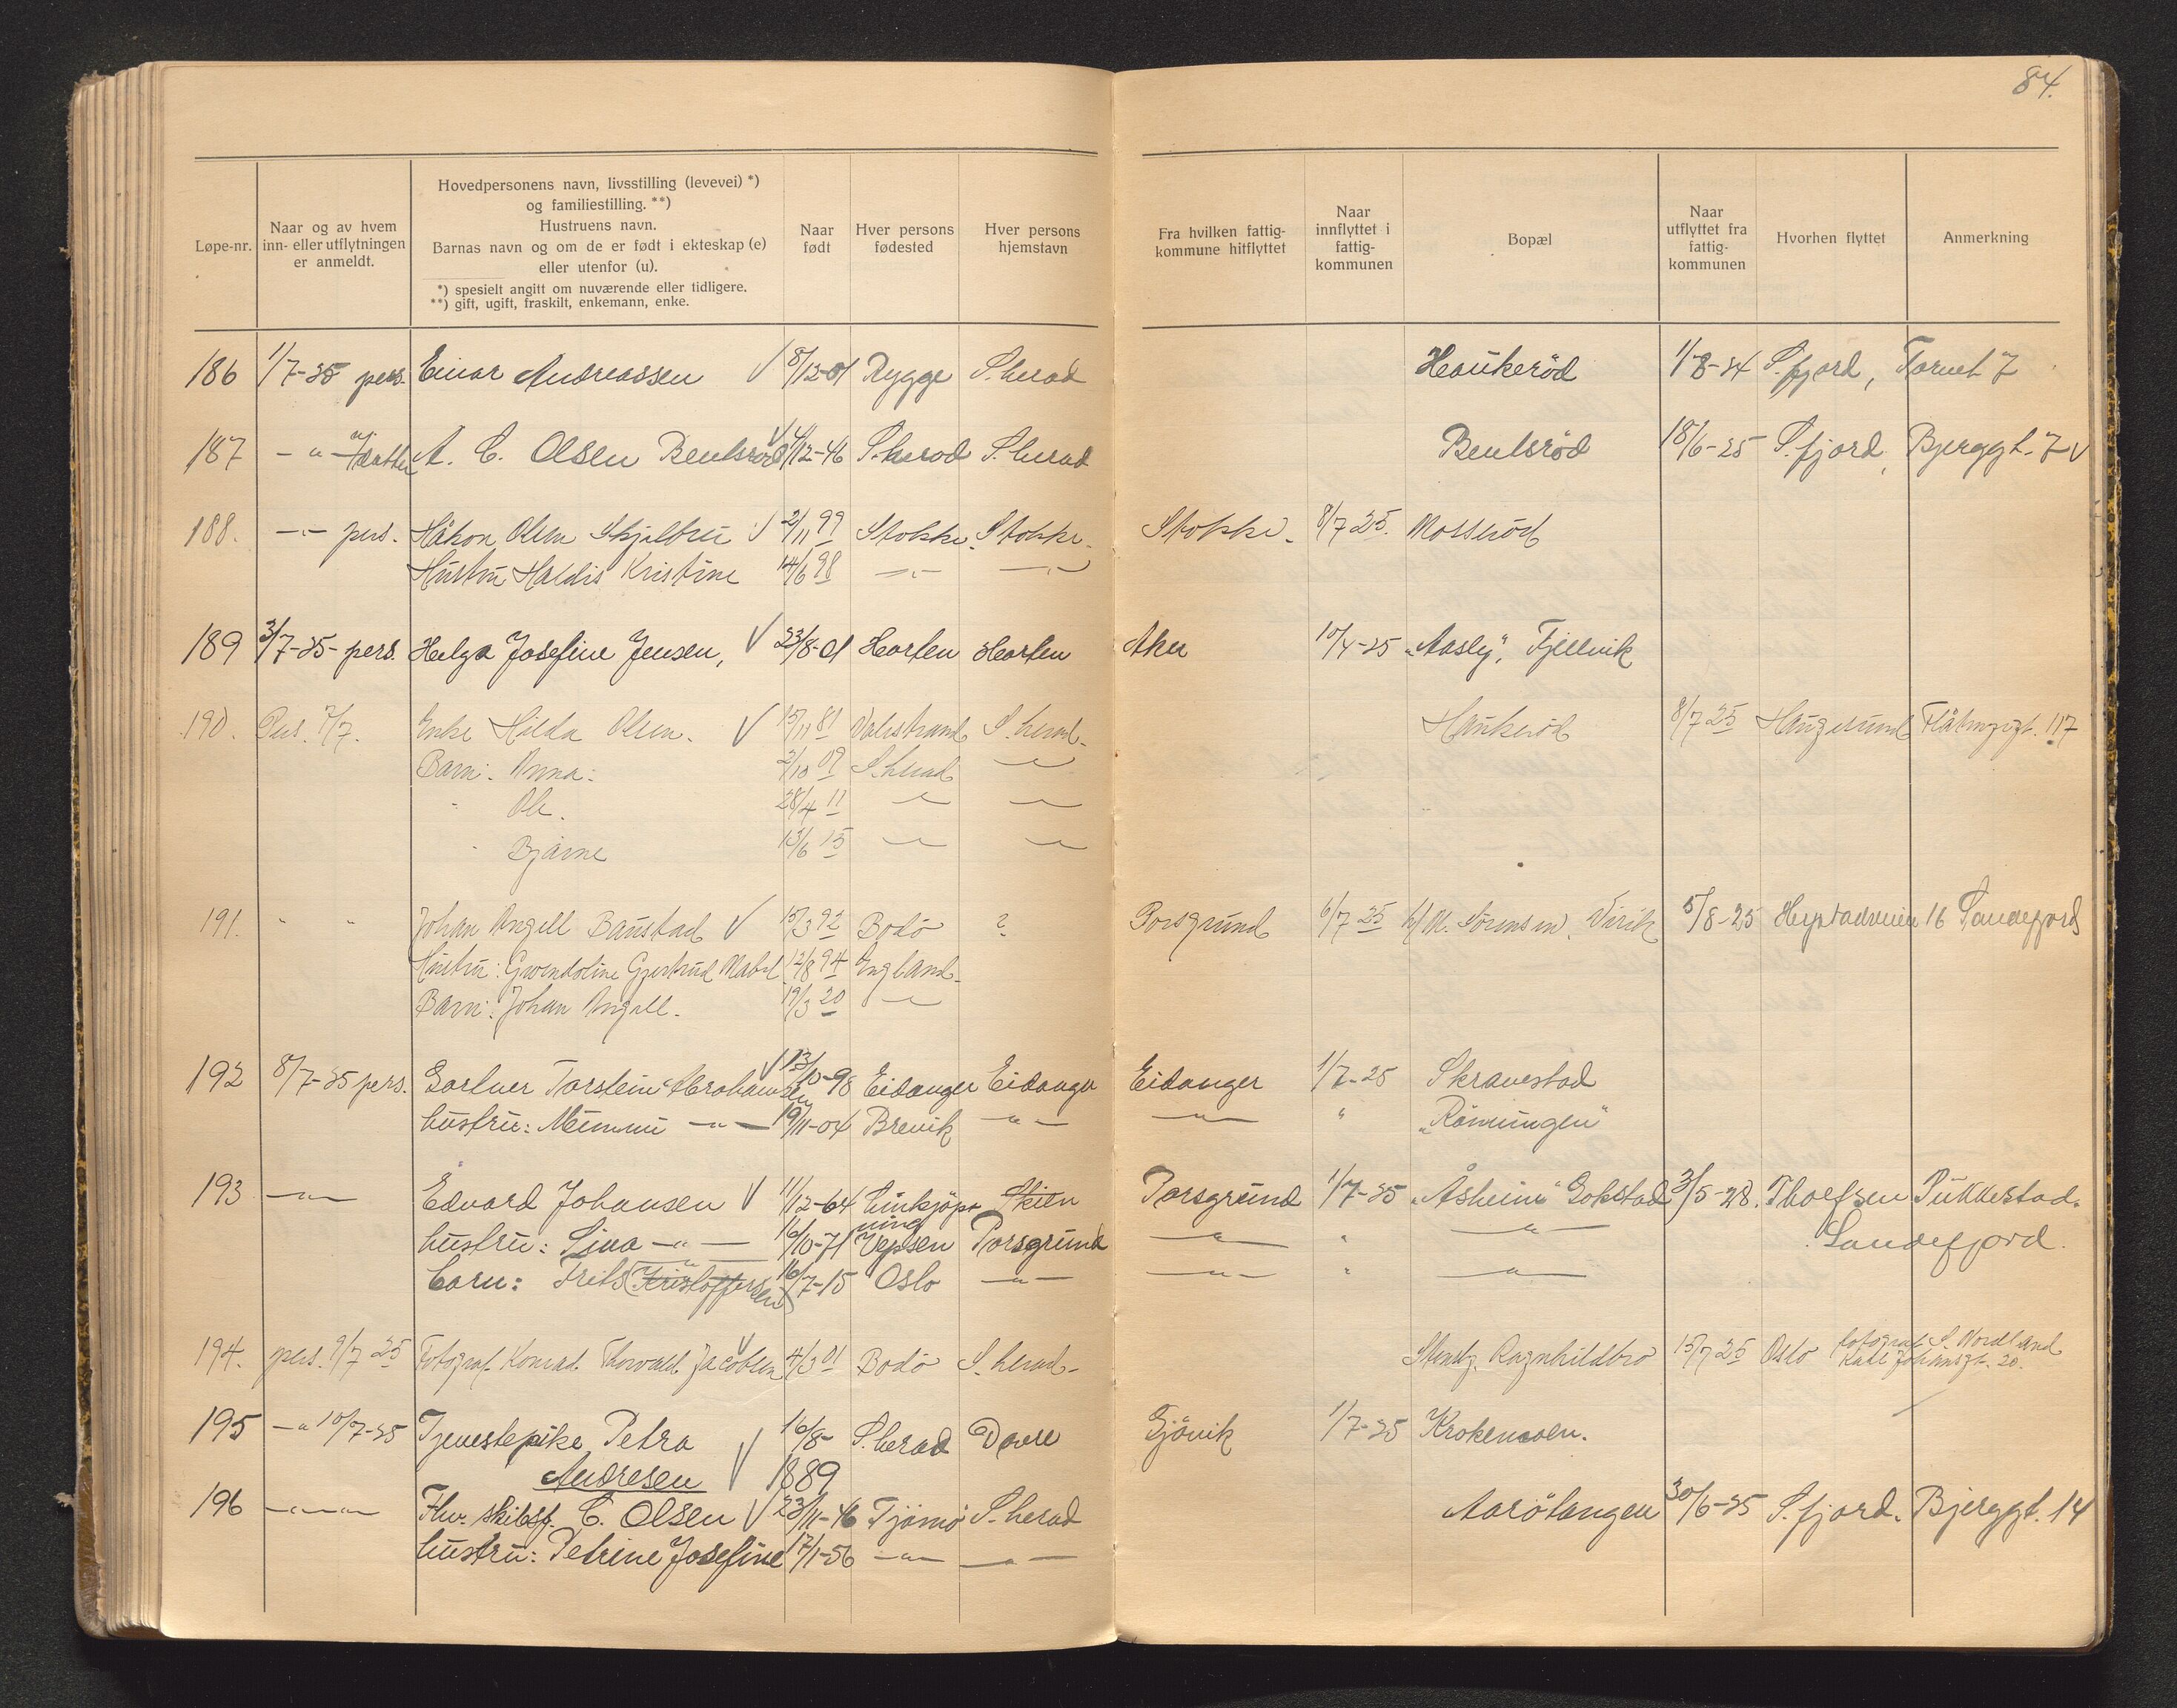 84.
Løpe-nr.
Naar og av hvem
inn- eller utflytningen
er anmeldt.
Hovedpersonens navn, livsstilling (levevei) *)
og familiestilling. **)
Hustruens navn.
Barnas navn og om de er født i ekteskap (e)
eller utenfor (u).
*) spesielt angitt om nuværende eller tidligere.
**) gift, ugift, fraskilt, enkemann, enke.
Naar
født
Hver persons
fødested
Hver persons
hjemstavn
Fra hvilken fattig-
kommune hitflyttet
Naar
innflyttet i
fattig-
kommunen
Bopæl
Naar
utflyttet fra
fattig-
kommunen
Hvorhen flyttet
Anmerkning
186 1/7-25 pers. Einar Andreassen √ 8/12-01 Rygge S.herad Haukeröd 1/8-24 S.fjord, Torvet 7
187 - " - A. C. Olsen Bentsrød 12-46 S.herad S.herad Bentsröd 18/6-25 S.fjord, Bjerggt. 7 √
188. -"- pers. Håkon Olsen Skjelbru √ 2/11 99 Stokke Stokke. Stokke. 8/7 25. Mosserød
Hustru Haldis Kristine 14/6 98 -"- -"-
189 3/7-25- pers. Helga Josefine Jensen, √ 23/8-01 Horten Horten Aker 10/4-25 "Aasly", Fjellvik
190. Pers. 7/7. Enke Hilda Olsen. √ 15/11 81 S.herad. Haukerød 8/7 25 Haugesund 117
Barn: Anna: 2/10 09 S.herad -"-
" Ole. 28/4 11 -"- -"-
" Bjarne 13/6 15 -"- -"-
191. " " Johan Angell Baustad √ 15/3 92 Bodö ? Porsgrund 6/7 25 h/ M. Sørensen, Virik 5/8-25 Hystadveien 16 Sandefjord
Hustru: Gwendoline Gjertrud Mabel 12/8 94 England.
Barn: Johan Angell. 19/3 20 -"-
192 8/7-25 pers. Gartner Torstein Abrahamsen √ 13/10-98 Eidanger Eidanger Eidanger 1/7-25 Skravestad
hustru: Mimmi -"- 19/11-04 Brevik -"- -"- " "Rönningen"
193 -"- Edvard Johansen √ 1/12-64 Linkjöping Skien Porsgrund 1/7-25 "Åsheim" Gokstad 3/5-28. Thoefsen Pukkestad.
hustru: Lina -"- 16/10-71 Porsgrund -"- " -"- Sandefjord.
barn: Frits (Kristoffersen) 16/7-15 Oslo -"- -"- " -"-
194. pers. 9/7 25 Fotograf Konrad Thorvald Jacobsen √ 4/3 01 Bodö S.herad. Ragnhildbro 15/7 25 Oslo fotograf S. Nordland
Karl Johansgt. 20.
195 -"- 10/7-25 Tjenestepike Petra √ 16/8- S.herad Dovre Gjövik 1/7-25 Krokenoen.
Andresen √ 1889
196 -"- Fhv. skibsf. C. Olsen √ 23/11-46 Tjömö S.herad Aarötangen 30/6-25 S.fjord. Bjerggt. 14
hustru: Petrine Josefine 17/1-56 -"- -"-